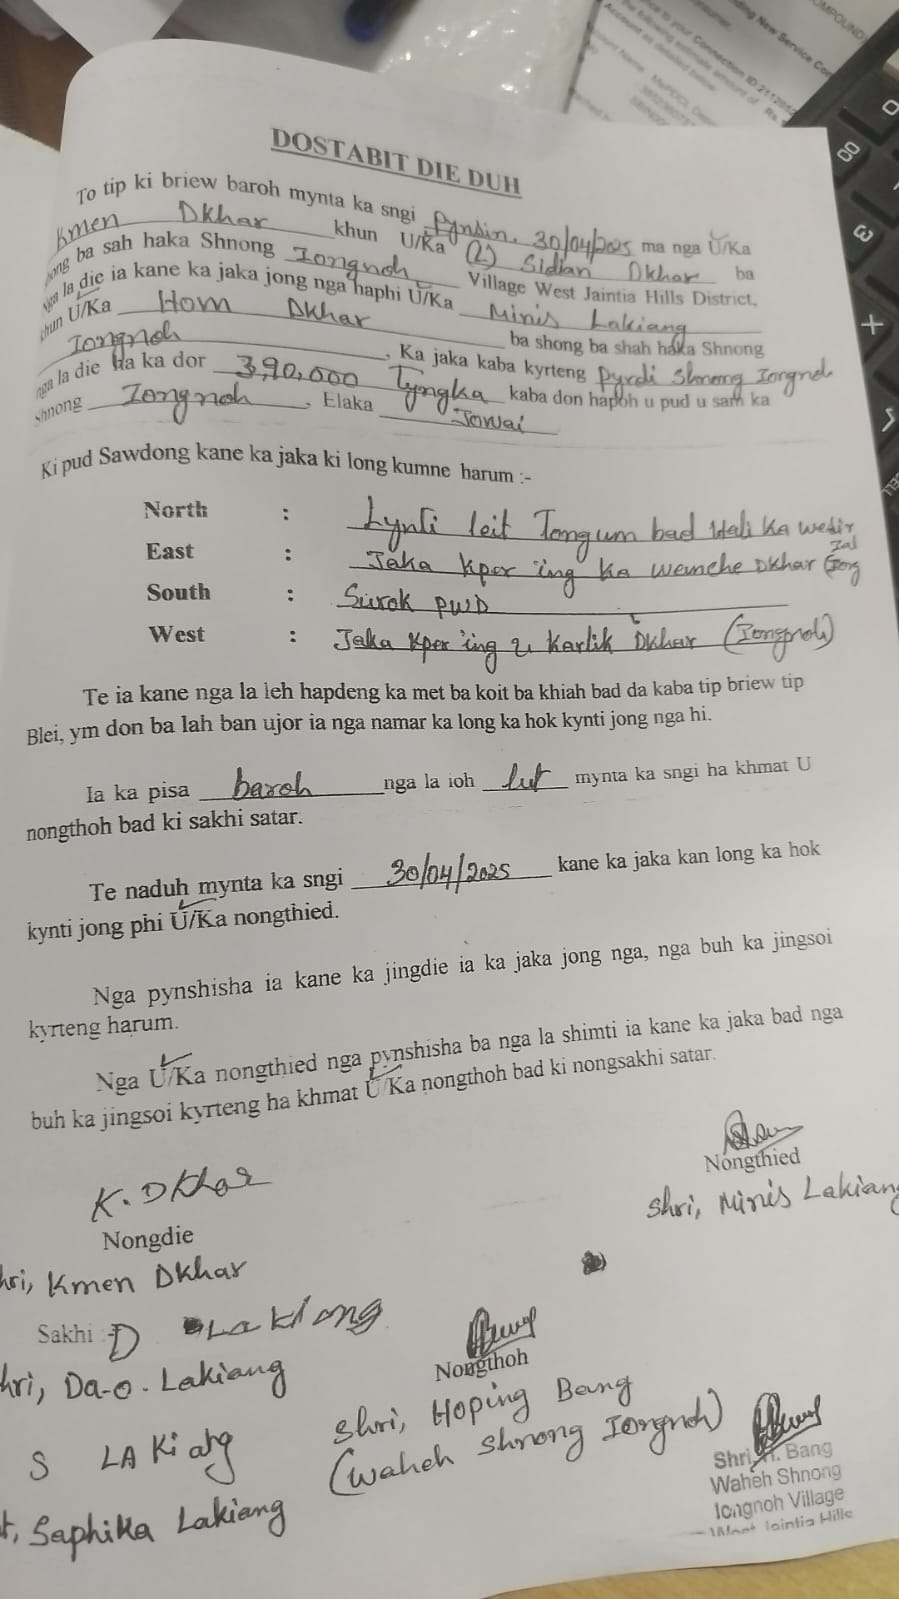 DOSTABIT DIE DUH
To tip ki briew baroh mynta ka sngi Pynsin, 30/04/2025 ma nga U/Ka
Kmen Dkhar khun U/Ka (L) Sidian Dkhar ba
ba sah haka Shnong Iongnoh Village West Jaintia Hills District,
nga la die ia kane ka jaka jong nga haphi U/Ka Minis Lakiang
khun U/Ka Hom Dkhar ba shong ba shah haka Shnong
Iongnoh, Ka jaka kaba kyrteng pyrdi Shnong Iongnoh
nga la die ha ka dor 3,90,000 Tyngka kaba don hapoh u pud u sam ka
shnong Iongnoh, Elaka Jowai
Ki pud Sawdong kane ka jaka ki long kumne harum :-
North : Lynti leit Tongum bad
East : Jaka kper ing ka wemche Dkhar
South : Surok PWD
West : Jaka kper ing u Karlik Dkhar (Iongnoh)
Te ia kane nga la leh hapdeng ka met ba koit ba khiah bad da kaba tip briew tip
Blei, ym don ba lah ban ujor ia nga namar ka long ka hok kynti jong nga hi.
Ia ka pisa baroh nga la ioh lut mynta ka sngi ha khmat U
nongthoh bad ki sakhi satar.
Te naduh mynta ka sngi 30/04/2025 kane ka jaka kan long ka hok
kynti jong phi U/Ka nongthied.
Nga pynshisha ia kane ka jingdie ia ka jaka jong nga, nga buh ka jingsoi
kyrteng harum.
Nga U/Ka nongthied nga pynshisha ba nga la shimti ia kane ka jaka bad nga
buh ka jingsoi kyrteng ha khmat U/Ka nongthoh bad ki nongsakhi satar.
K. Dkhar
Nongdie
Shri, Kmen Dkhar
Nongthied
Shri, Minis Lakiang
Sakhi :- D Lakiang
Shri, Da-o. Lakiang
S LAKiang
Saphika Lakiang
Nongthoh
Shri, Hoping Bang
(Waheh Shnong Iongnoh)
Shri H. Bang
Waheh Shnong
Iongnoh Village
West Jaintia Hills